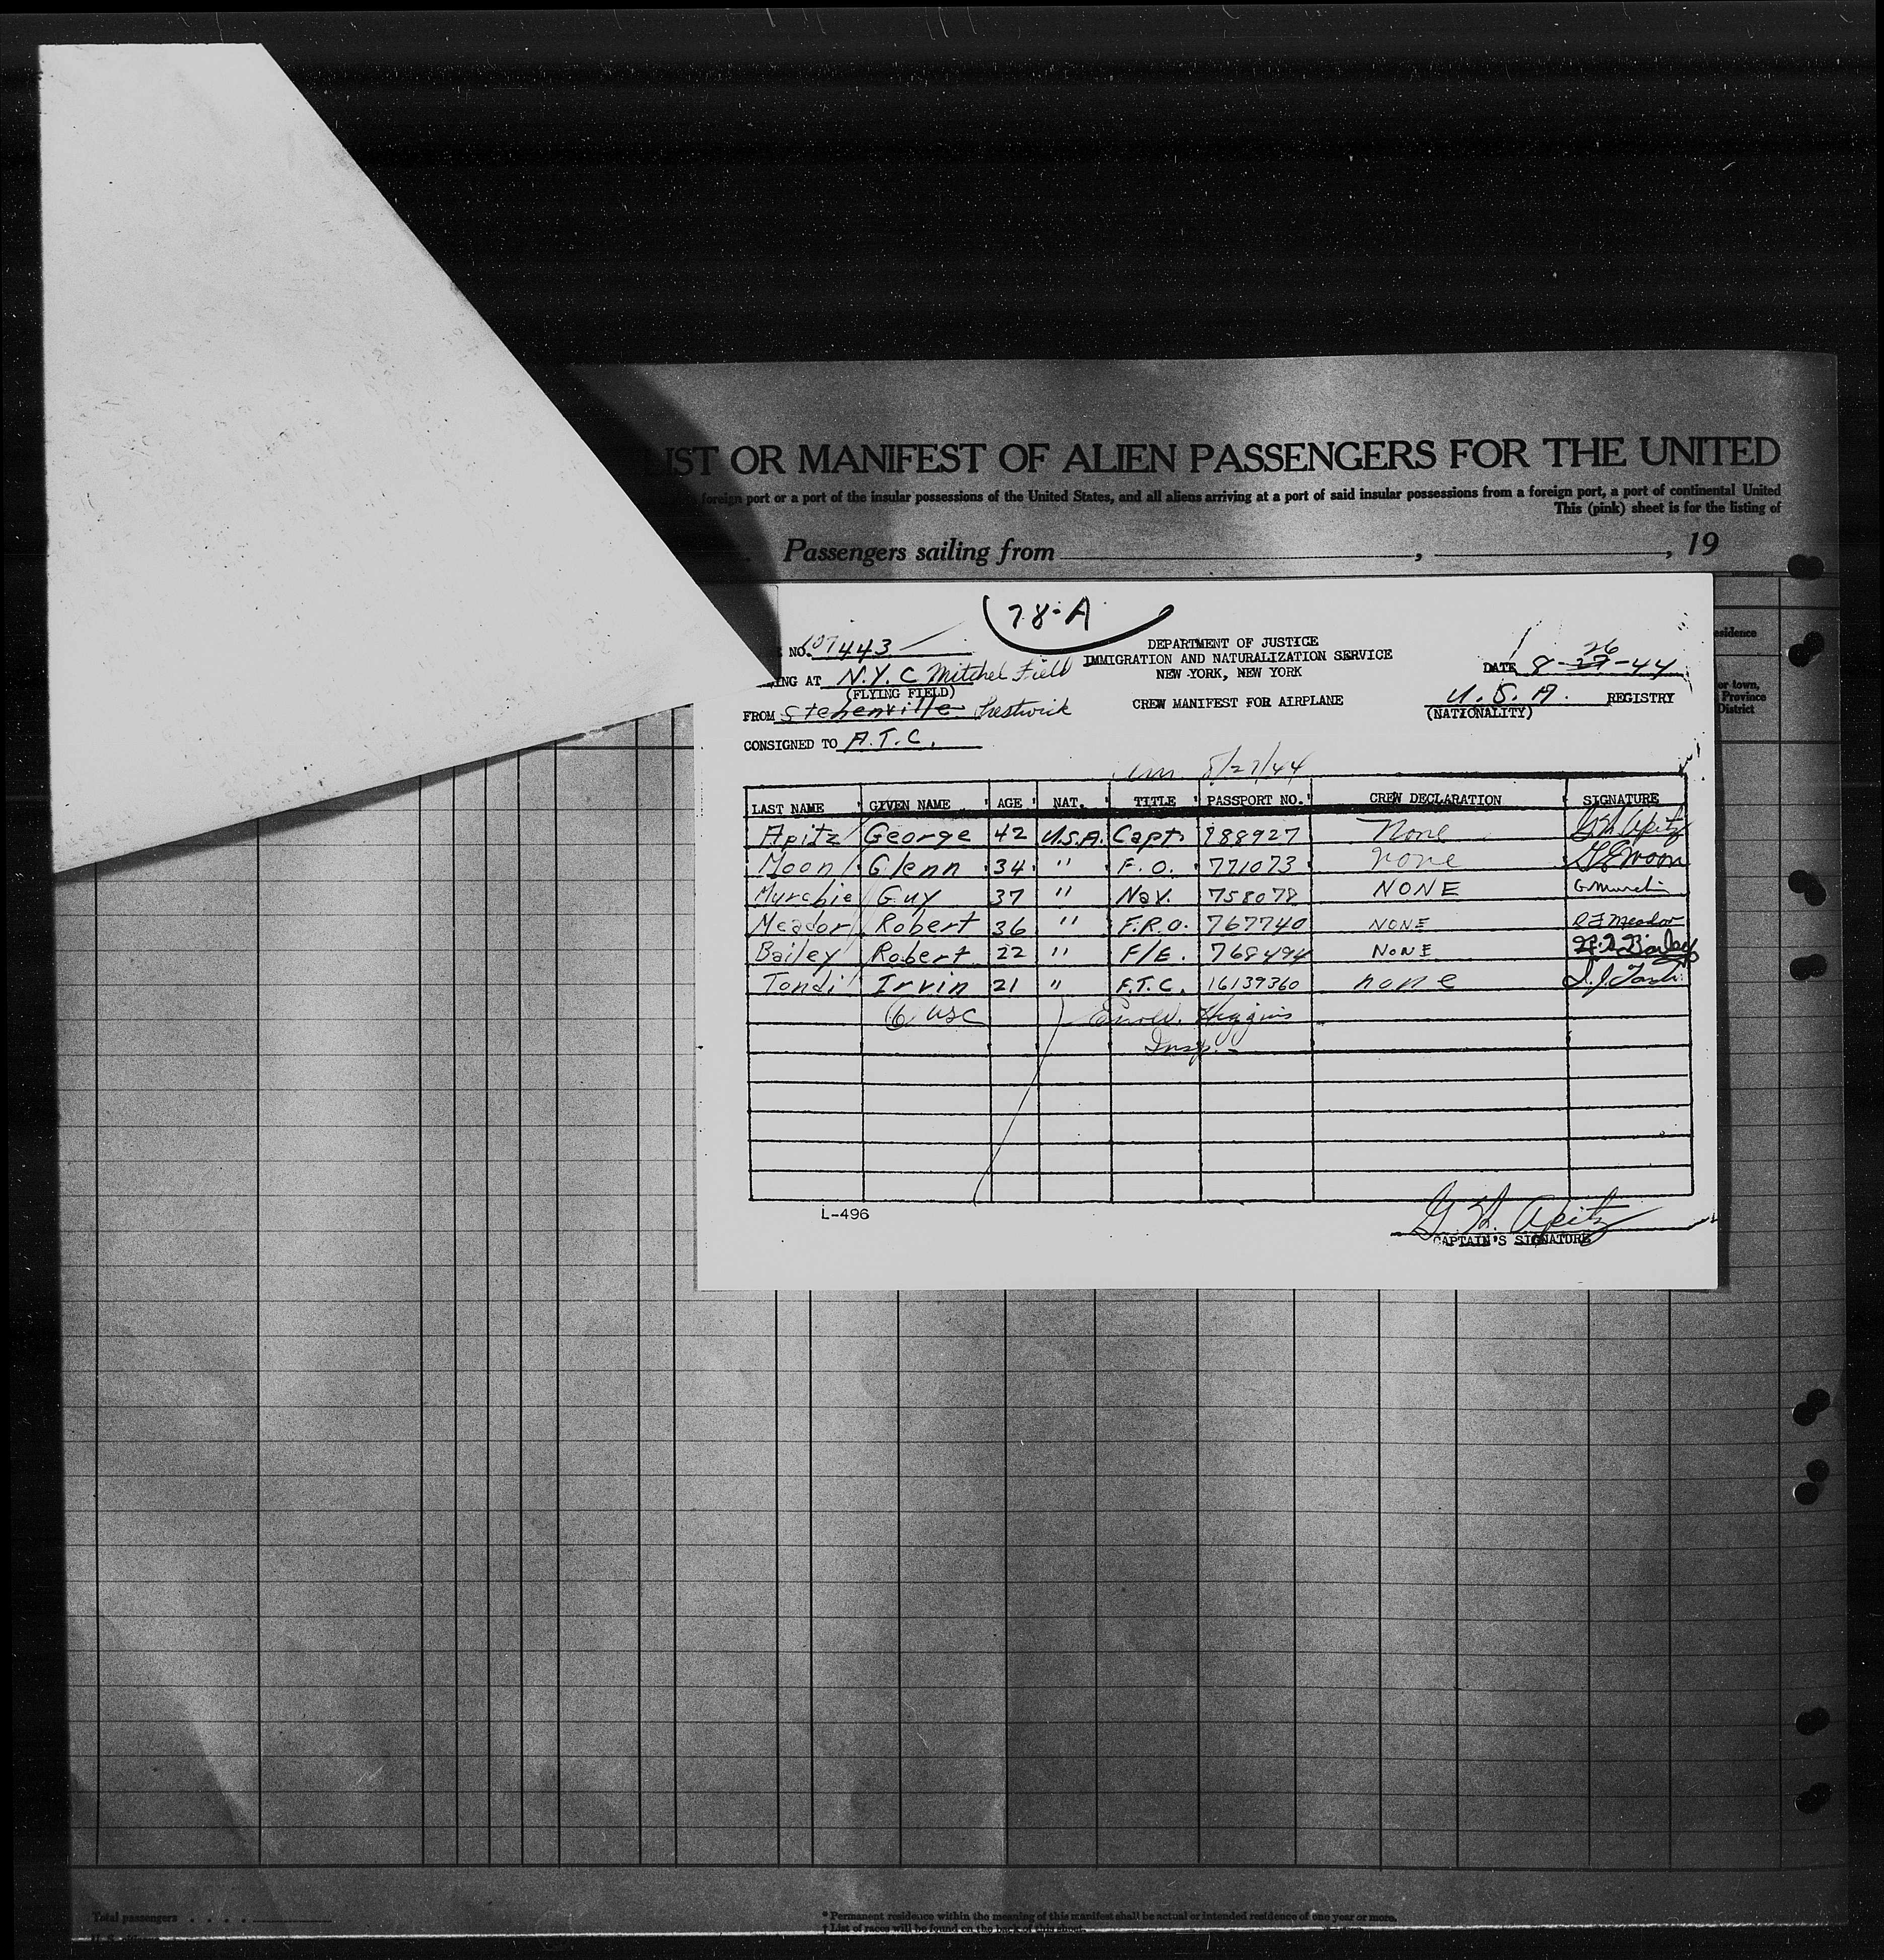 IST OR MANIFEST OF ALIEN PASSENGERS FOR THE UNITED
foreign port or a port of the insular possessions of the United States, and all aliens arriving at a port of said insular possessions from a foreign port, a port of continental United
This (pink) sheet is for the listing of
Passengers sailing from , , 19
78-A
NO. 107443
DEPARTMENT OF JUSTICE
IMMIGRATION AND NATURALIZATION SERVICE
NEW YORK, NEW YORK
DATE 8-27-44
26
ING AT N.Y.C Mitchel Field
(FLYING FIELD)
CREW MANIFEST FOR AIRPLANE
U.S.A. REGISTRY
(NATIONALITY)
FROM Stehenville Prestwick
CONSIGNED TO A.T.C.
8/27/44
LAST NAME GIVEN NAME AGE NAT. TITLE PASSPORT NO. CREW DECLARATION SIGNATURE
Apitz George 42 U.S.A. Capt. 888927 None G. H. Apitz
Moon Glenn 34 " F.O. 771073 none G E Moon
Murchie Guy 37 " Nav. 758078 NONE G Murchie
Meador Robert 36 " F.R.O. 767740 NONE R F Meador
Bailey Robert 22 " F/E. 768494 NONE Bailey
Tondi Irvin 21 " F.T.C. 16139360 none I. J. Tondi
6 USC Higgins
Insp.
L-496
G. H. Apitz
CAPTAIN'S SIGNATURE
esidence
or town,
Province
District
Total passengers . . . .
* Permanent residence within the meaning of this manifest shall be actual or intended residence of one year or more.
† List of races will be found on the back of this sheet.